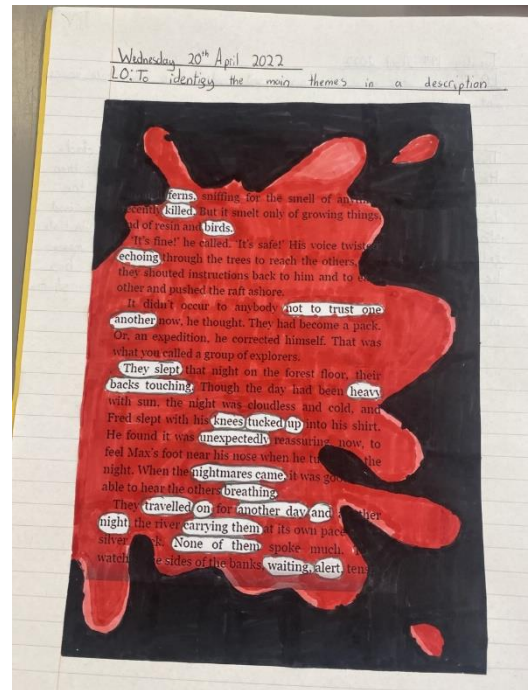 Wednesday 20th April 2022
LO: To identigy the main themes in a description
ferns, sniffing for the smell of
killed. But it smelt only of growing things
of resin and birds.
'It's fine!' he called. 'It's safe!' His voice
echoing through the trees to reach the others,
they shouted instructions back to him and to
other and pushed the raft ashore.
It didn't occur to anybody not to trust one
another now, he thought. They had become a pack.
Or, an expedition, he corrected himself. That was
what you called a group of explorers.
They slept that night on the forest floor, their
backs touching. Though the day had been heavy
with sun, the night was cloudless and cold, and
Fred slept with his knees tucked up into his shirt.
He found it was unexpectedly reassuring, now, to
feel Max's foot near his nose when he the
night. When the nightmares came, it was
able to hear the others breathing.
They travelled on for another day and
night, the river carrying them at its own pace
silver None of them spoke much.
watch sides of the banks, waiting, alert,